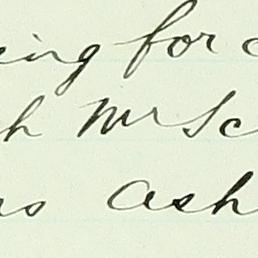 ing for
h Mr Sc
as Ash